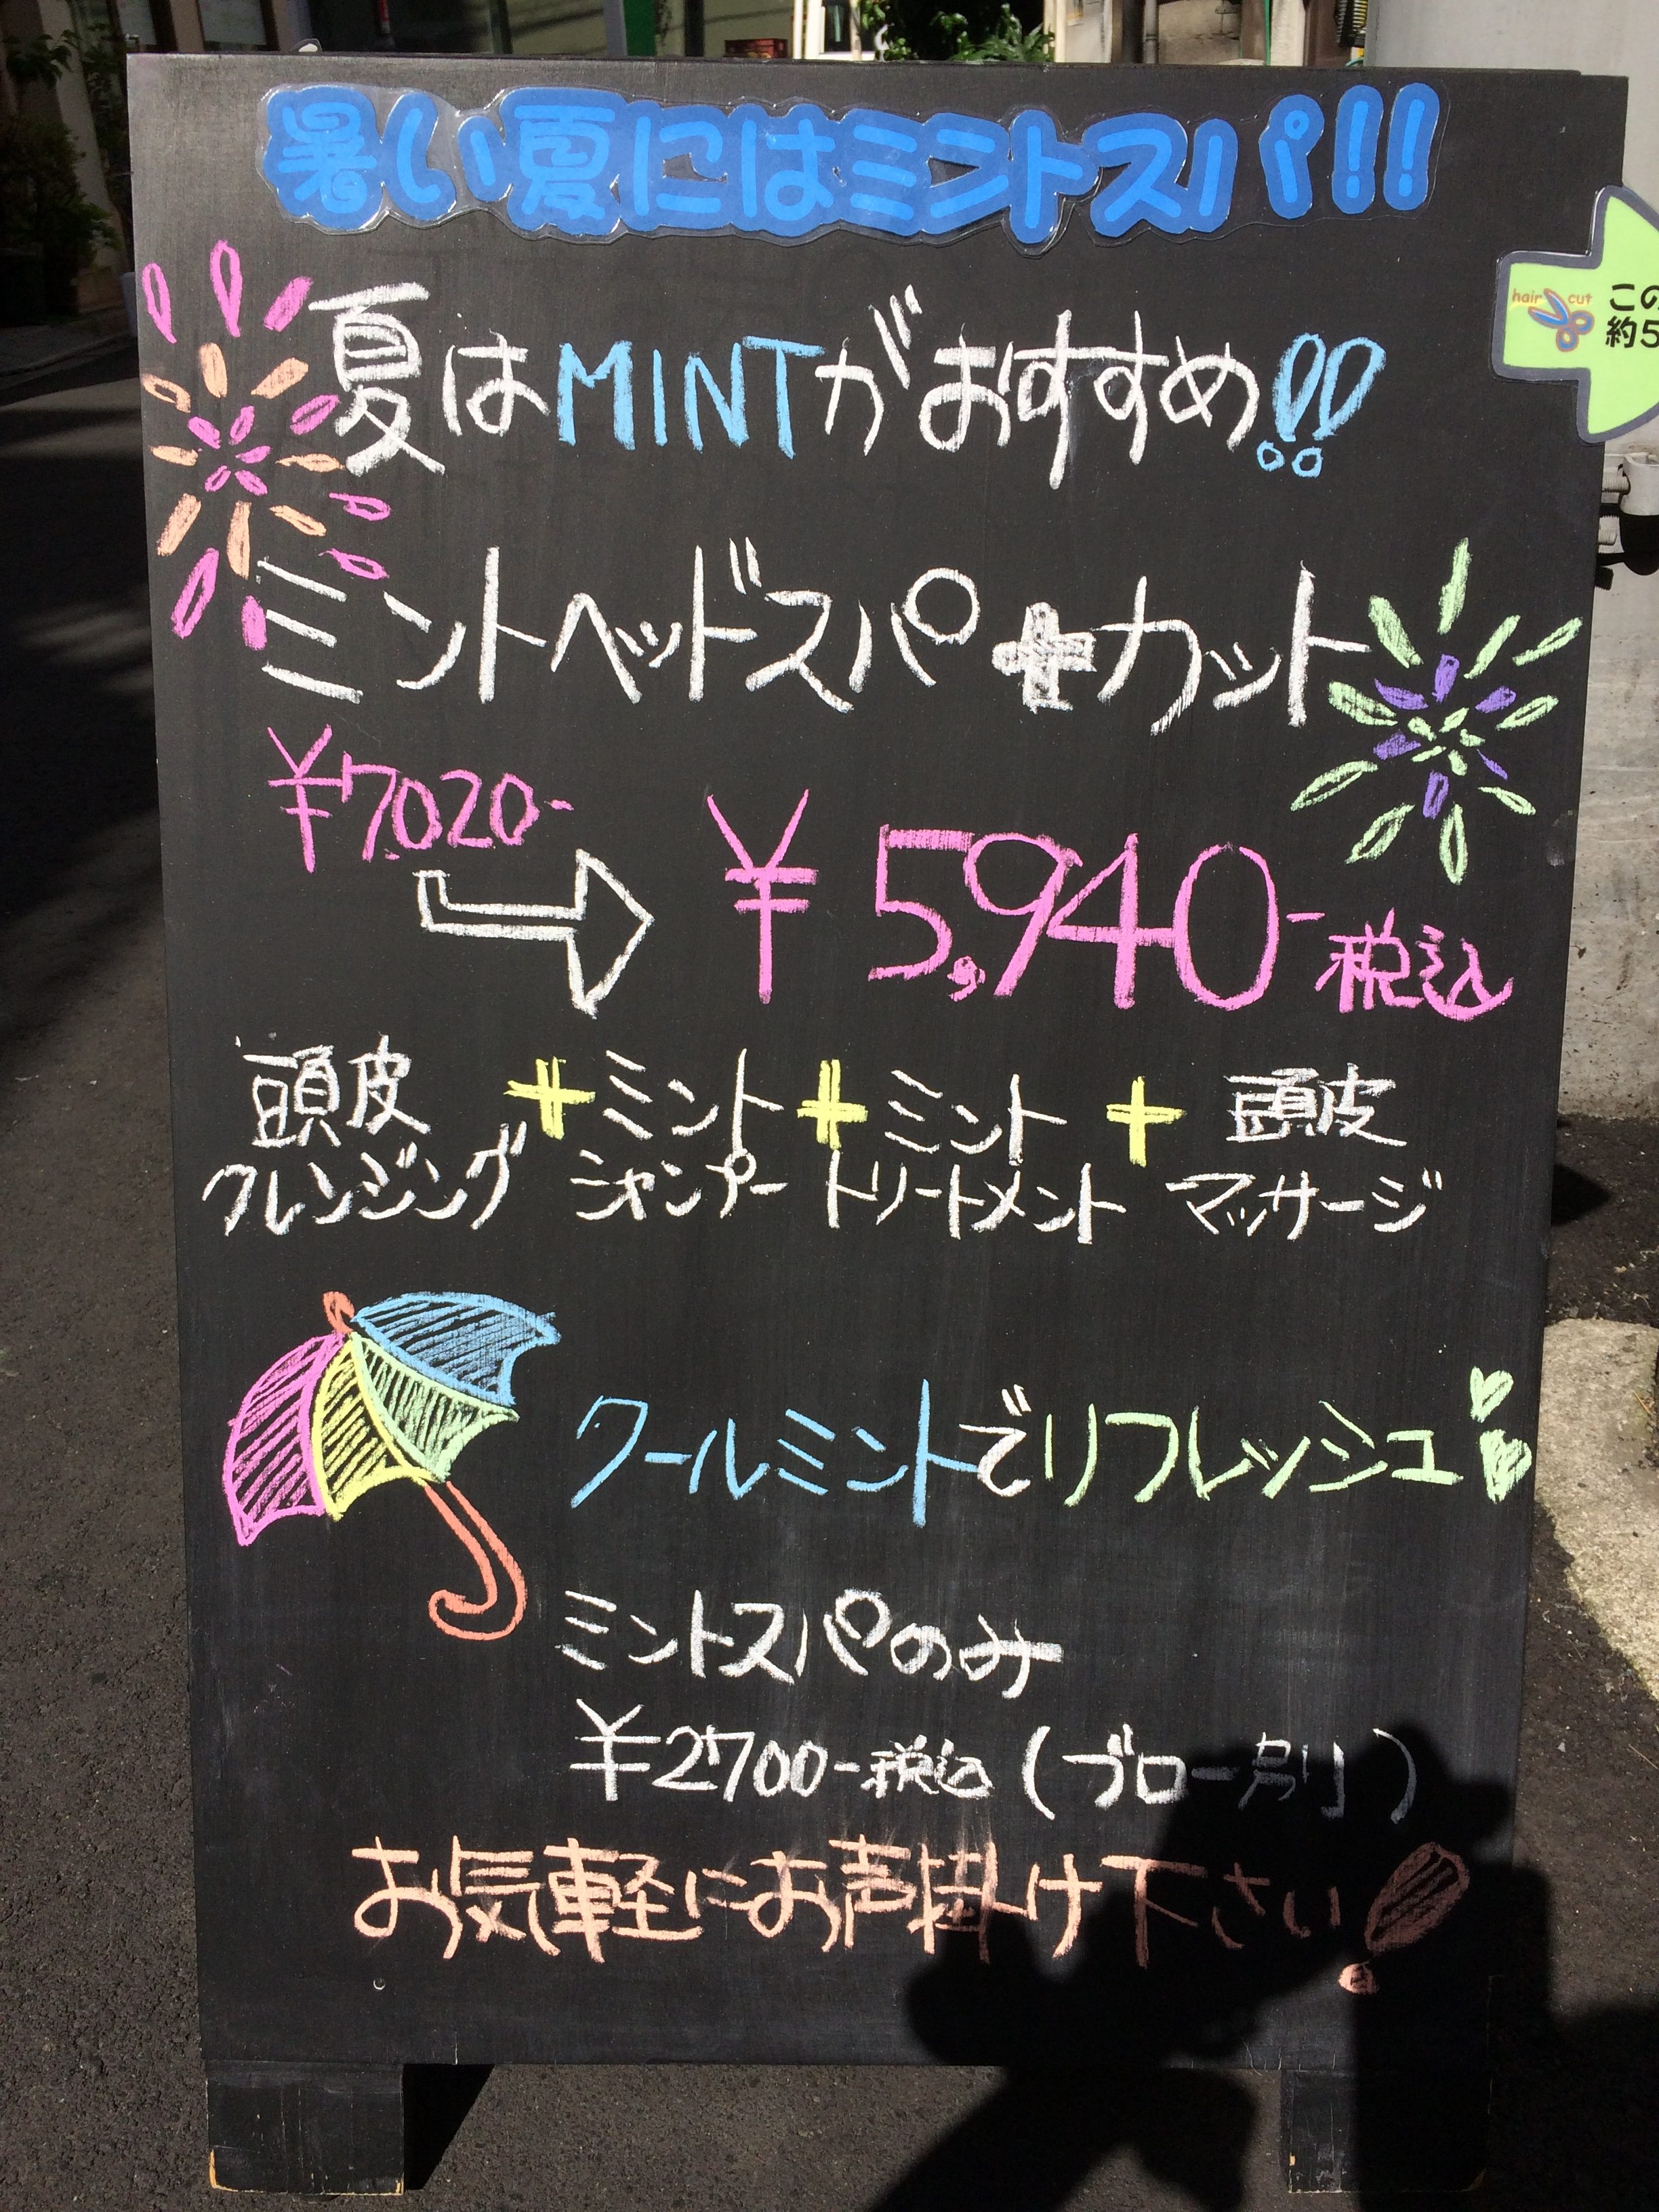 暑い夏にはミントスパ!!
夏はMINTがおすすめ!!
ミントヘッドスパ+カット
¥7,020-
¥5,940-税込
頭皮 + ミント + ミント + 頭皮
クレンジング シャンプー トリートメント マッサージ
クールミントでリフレッシュ
ミントスパのみ
¥2700-税込(ブロー別)
お気軽にお声掛け下さい!
hair cut
この
約5